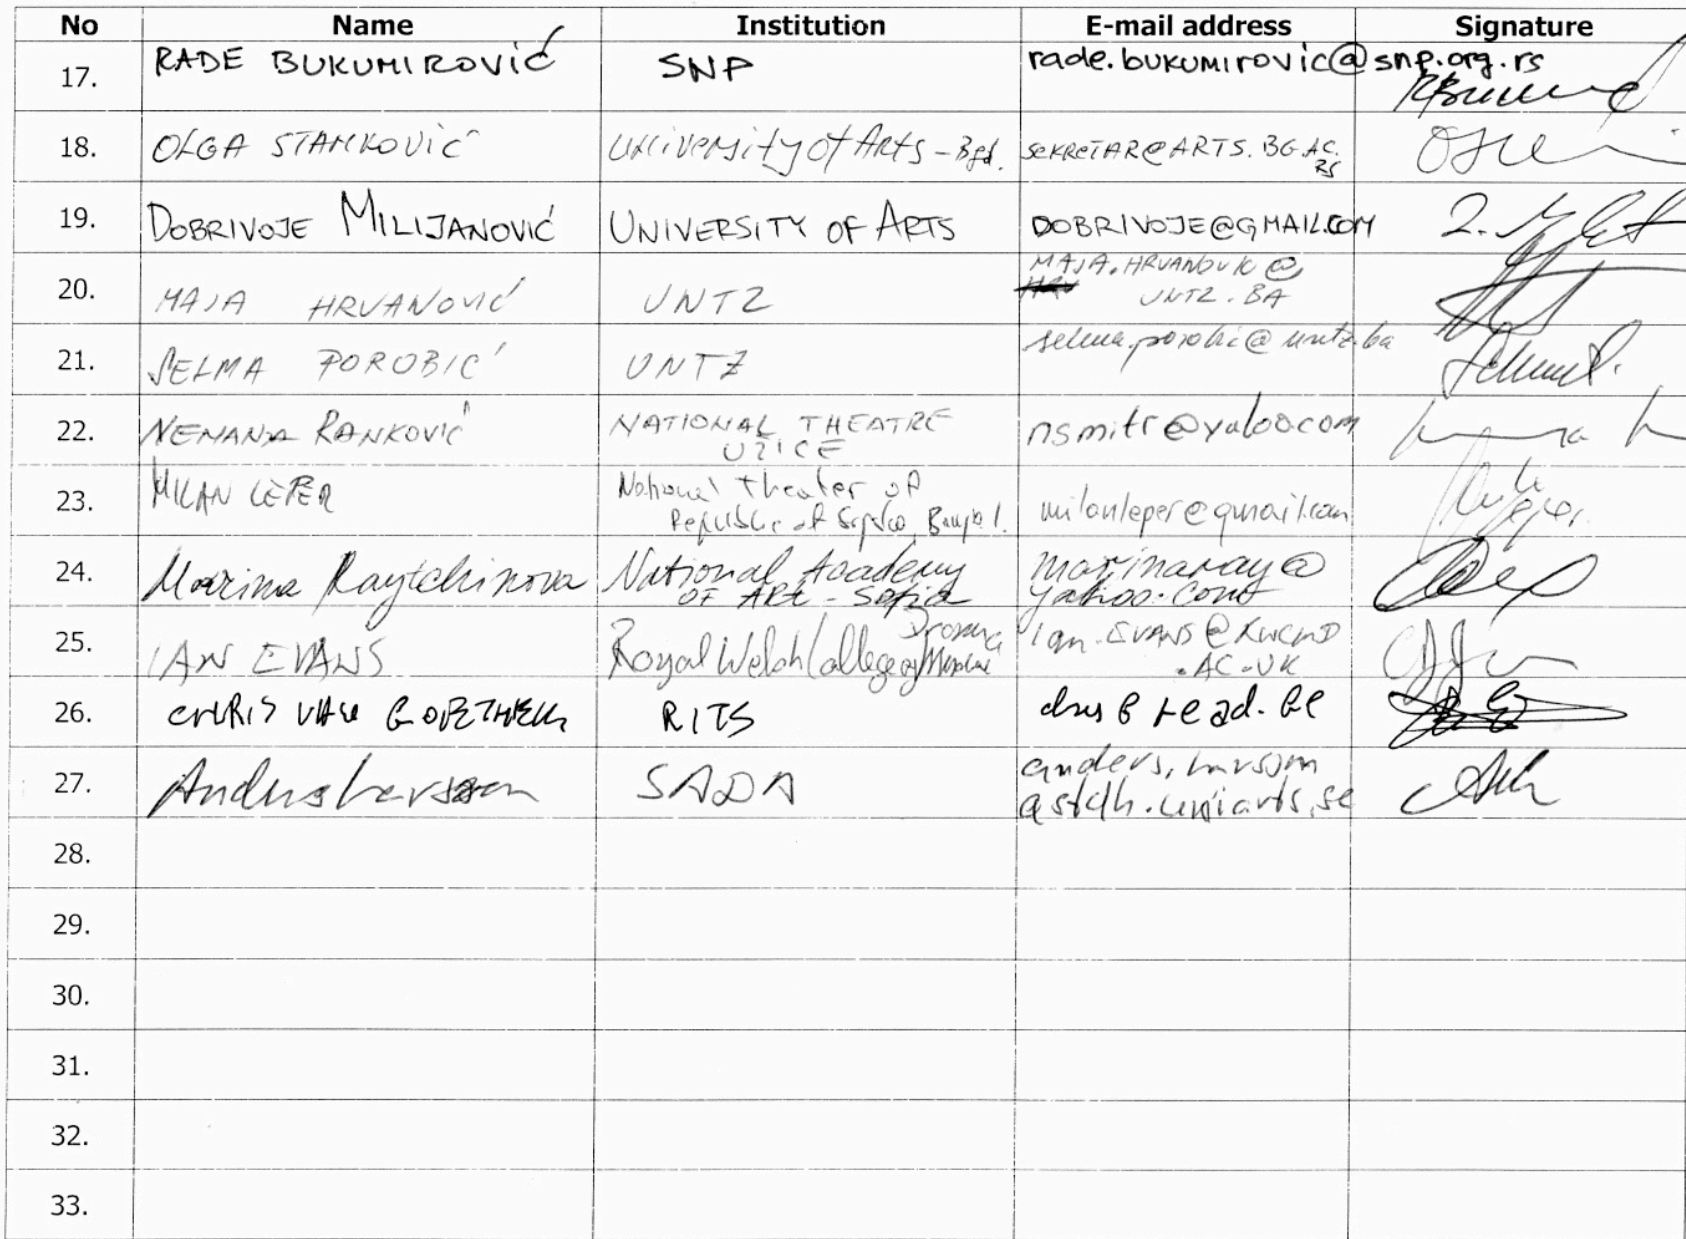 No Name Institution E-mail address Signature
17. RADE BUKUMIROVIĆ SNP rade.bukumirovic@snp.org.rs
18. OLGA STANKOVIĆ University of Arts - Bgd. SEKRETAR@ARTS.BG.AC.
RS
19. DOBRIVOJE MILIJANOVIĆ UNIVERSITY OF ARTS DOBRIVOJE@GMAIL.COM
MAJA.HRVANOVIC@
20. MAJA HRVANOVIĆ UNTZ UNTZ.BA
21. SELMA POROBIĆ UNTZ selma.porobic@untz.ba
22. NEMANJA RANKOVIĆ NATIONAL THEATRE nsmitr@yahoo.com
UŽICE
23. MILAN LEPER National Theater of milanleper@gmail.com
Republic of
24. Marina Raytchinova National Academy marinaray@
OF ARt - Sofia yahoo.com
Drama
25. IAN EVANS Royal Welsh College of Ian.EVANS@RWCMD
.AC.UK
26. CHRIS VAN GOETHEM RITS
27. Anders Larsson SADA anders.larsson
@stdh.uniarts.se
28.
29.
30.
31.
32.
33.